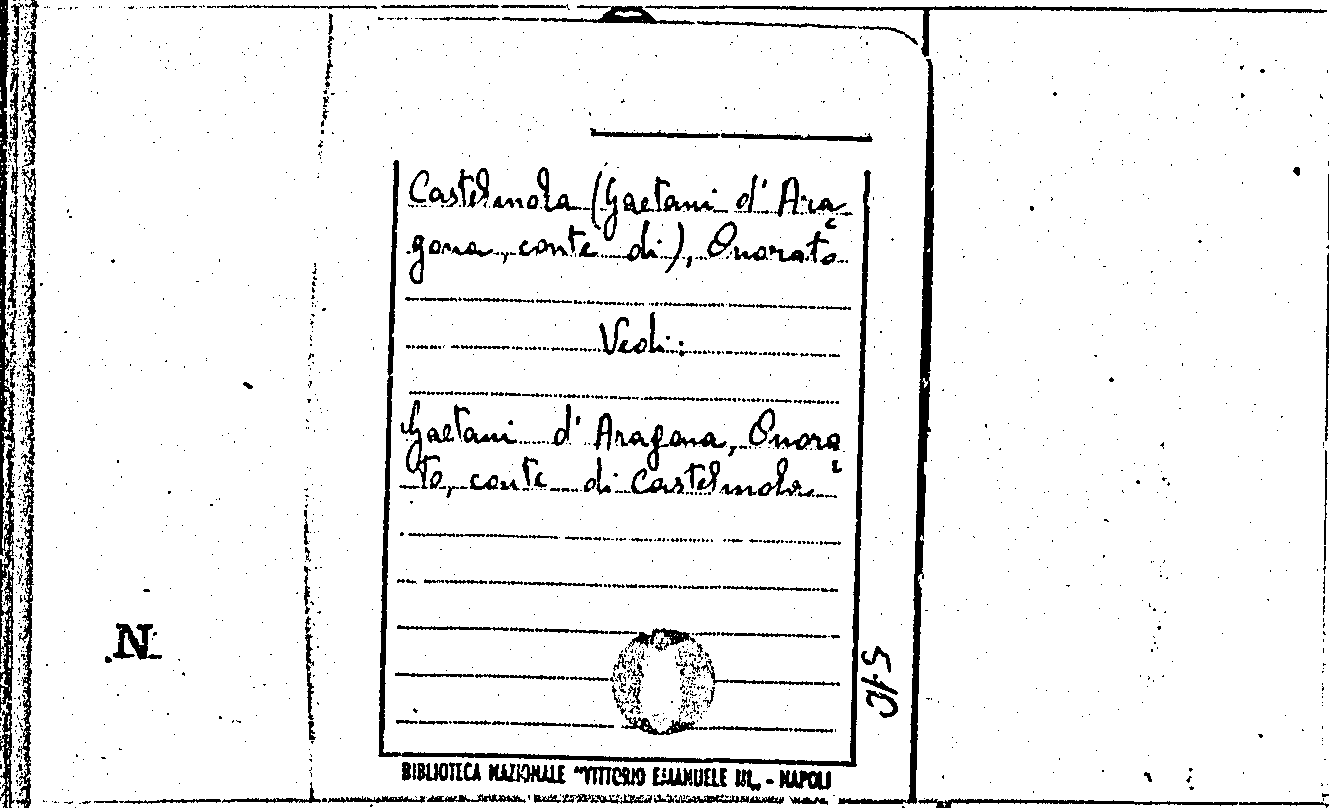 Castelmola (Gaetani d'Ara=
gona, conte di), Onorato
Vedi:
Gaetani d'Aragona, Onora=
to, conte di Castelmola
N
510
BIBLIOTECA NAZIONALE "VITTORIO EMANUELE III„ - NAPOLI